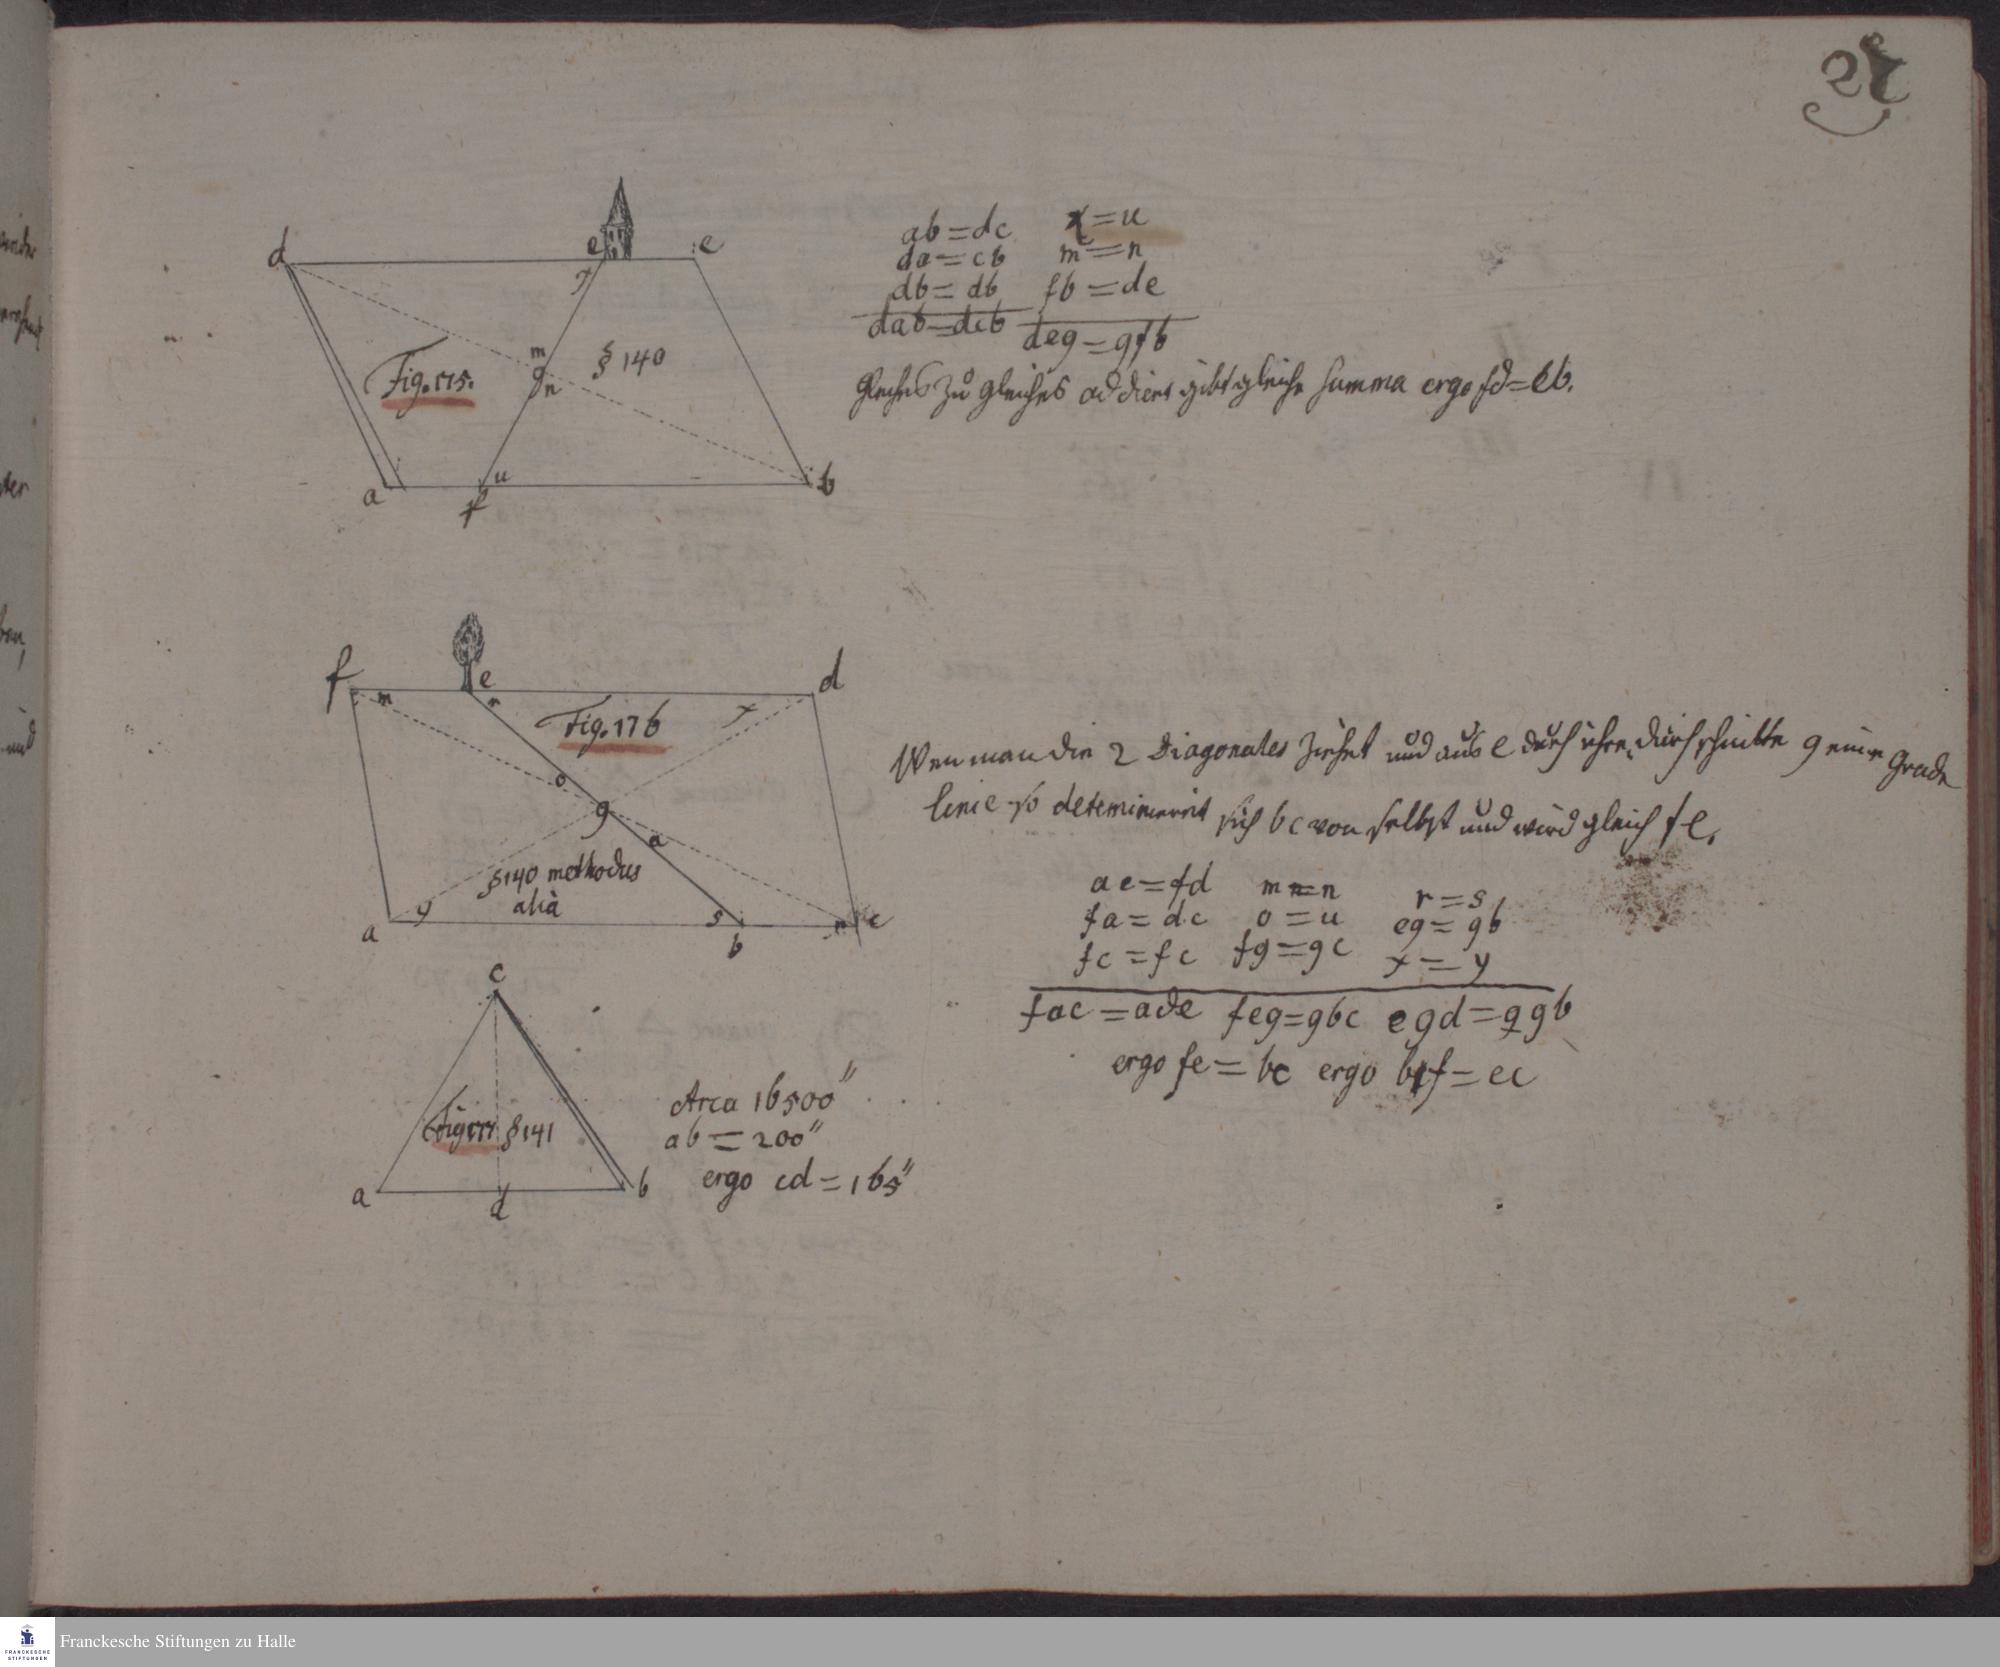 d
e
e
x
ab = dc x = u
da = cb m = n
db = db fb = de
dab = dcb deg = gfb
Gleiches zu gleiches addiert gibt gleiche Summa ergo fd = eb.
Fig. 175.
m
g
n
§ 140
a
f
u
b
f
m
e
r
Fig. 176
x
d
o
g
a
§ 140 methodus
alia
a
y
s
b
n
c
Wen man die 2 Diagonales ziehet und aus e durch ihre durchschnitte g eine Grade
linie so determinirt sich bc von selbst und wird gleich fe.
ac = fd m = n r = s
fa = dc o = u eg = gb
fc = fc fg = gc x = y
fac = ade feg = gbc egd = ggb
ergo fe = bc ergo f = ec
c
Fig 177 § 141
a
d
b
Area 16500″
ab = 200″
ergo cd = 165″
Franckesche Stiftungen zu Halle
FRANCKESCHE
STIFTUNGEN